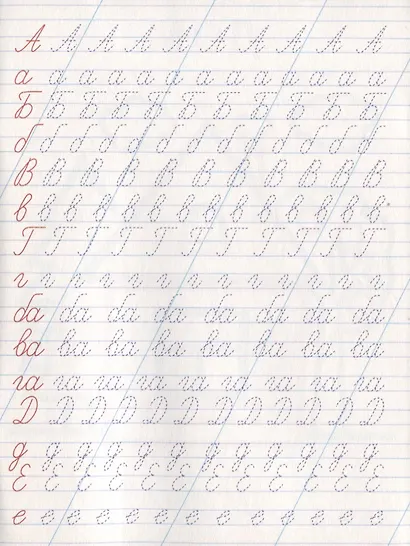 А А А А А А А А А А
а а а а а а а а а а а а а
Б Б Б Б Б Б Б Б Б Б Б Б
б б б б б б б б б б б б б
В В В В В В В В В В В
в в в в в в в в в в в в в в
Г Г Г Г Г Г Г Г Г Г Г
г г г г г г г г г г г г г
ба ба ба ба ба ба ба ба
ва ва ва ва ва ва ва ва
га га га га га га га га га
Д Д Д Д Д Д Д Д Д Д Д Д
д д д д д д д д д д д д д
Е Е Е Е Е Е Е Е Е Е Е Е
е е е е е е е е е е е е е е